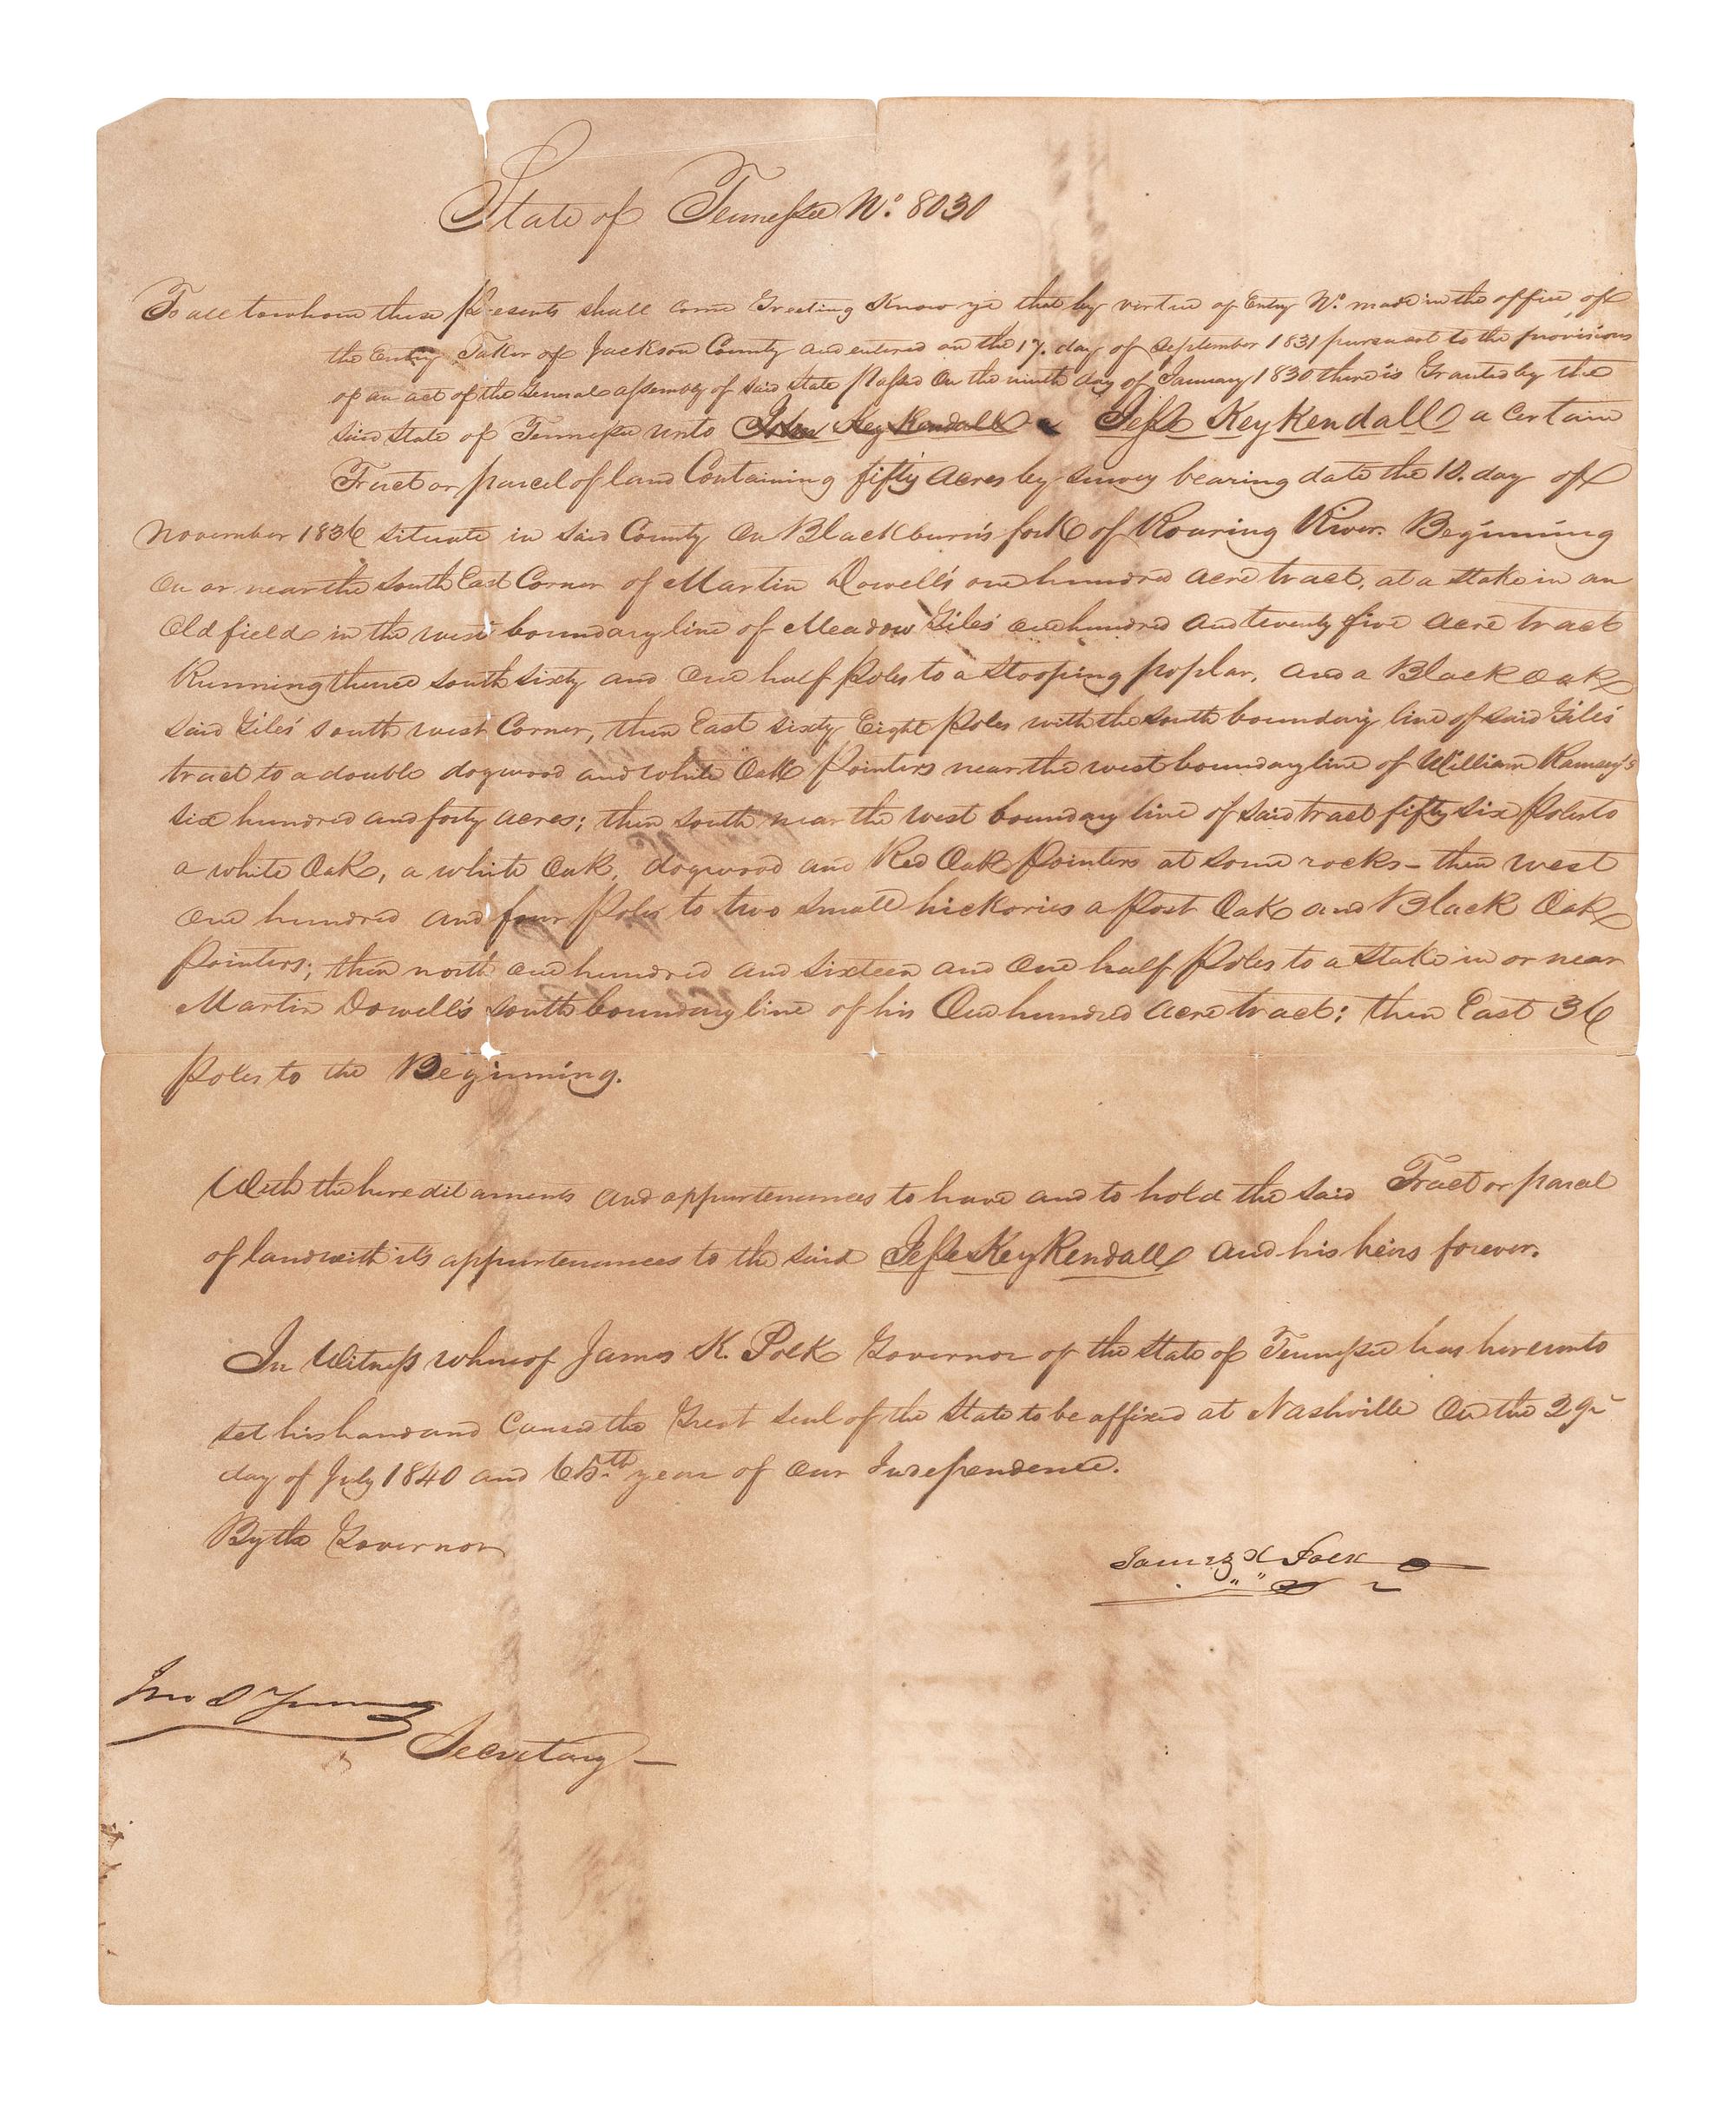 State of Tennessee No. 8030
To all to whom these presents shall come Greeting Know ye that by virtue of Entry No. made in the office of
the Entry Taker of Jackson County and entered on the 17. day of September 1831 pursuant to the provisions
of an act of the General assembly of said State Passed On the ninth day of January 1830 there is Granted by the
said State of Tennessee unto Key Kendall Jesse KeyKendall a Certain
Tract or parcel of land Containing fifty acres by survey bearing date the 10. day of
November 1836 situate in said County On Blackburn's fork of Roaring River. Beginning
On or near the South East Corner of Martin Dowell's one hundred acre tract, at a stake in an
Old field in the west boundary line of Meadow Giles' one hundred and twenty five acre tract
Running thence south sixty and one half Poles to a stooping poplar, and a Black oak
said Giles' south west Corner, then East sixty Eight poles with the south boundary line of said Giles'
tract to a double dogwood and white Oak Pointers near the west boundary line of William Ramsey's
six hundred and forty acres; then south near the west boundary line of said tract fifty six Poles to
a white Oak, a white Oak, dogwood and Red Oak Pointers at some rocks - then west
One hundred and four Poles to two small hickories a Post Oak and Black Oak
Pointers; then north one hundred and sixteen and one half Poles to a stake in or near
Martin Dowell's south boundary line of his One hundred acre tract; then East 36
Poles to the Beginning.
With the hereditaments and appurtenances to have and to hold the said Tract or parcel
of land with it's appurtenances to the said Jesse KeyKendall and his heirs forever.
In Witness whereof James K. Polk Governor of the State of Tennessee has hereunto
set his hand and Caused the Great Seal of the State to be affixed at Nashville On the 29th
day of July 1840 and 65th year of Our Independence.
By the Governor
James K Polk
Jno S Young
Secretary